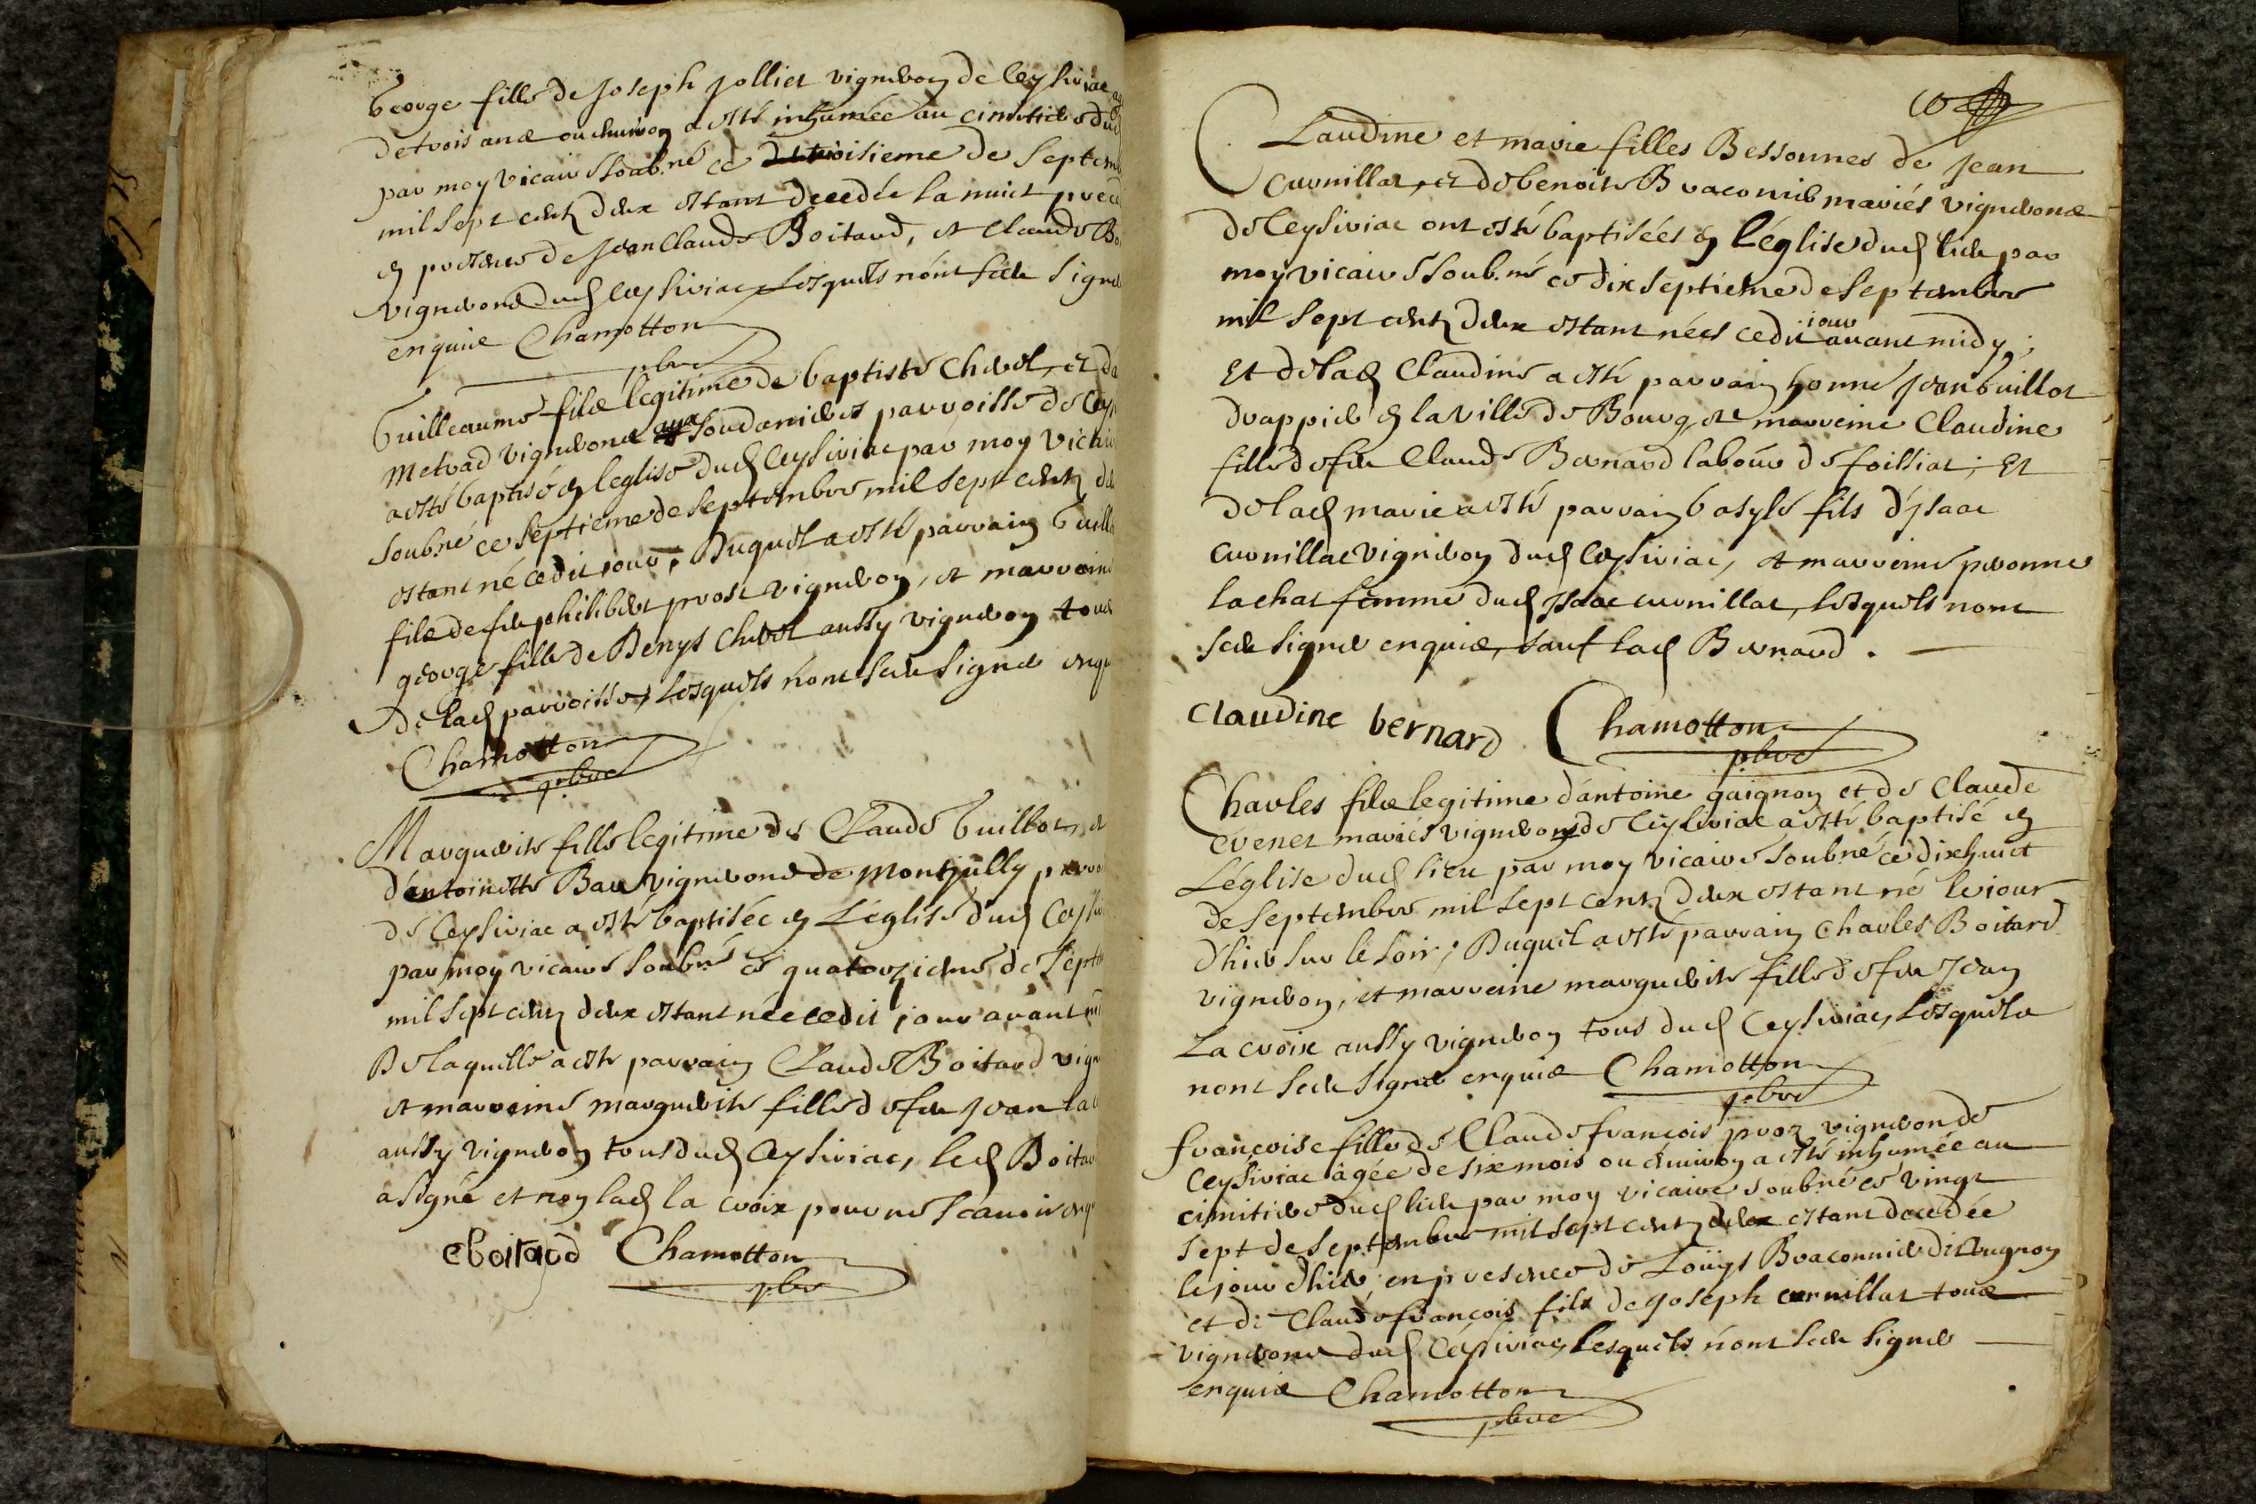 George fille de Joseph Jolliet vigneron de Ceysiriac
de trois ans ou environ a esté inhumée au cimetiere dud
par moy vicaire soubné ce troisieme de Septem
mil sept centz deux estant decedée la nuict preced
en presences de Jean Claude Boitard, et Claude Bo
vignerons dud Ceysiriac Lesquels n'ont sceu signer
enquis Chamotton
pbre
Guilleaume fils legitime de baptiste Chevol, et de
Metrad vignerons aux Soudanieres parroisse de Cey
a esté baptisé en leglise dud Ceysiriac par moy vicaire
soubné ce septieme de septembre mil sept centz de
estant né cedit jour; Duquel a esté parrain Guill
fils de feu philibert prost vigneron, et marraine
george fille de Denys Chevol aussy vigneron tous
de lad parroisse, Lesquels n'ont sceu signer enqu
Chamotton
pbre
Marguerite fille legitime de Claude Guillot, et
d'antoinette Bau vignerons de Montjully parro
de Ceysiriac a esté baptisée en L'église dud Ceysi
par moy vicaire soubné ce quatorzieme de septe
mil sept centz deux estant née cedit jour avant mi
De laquelle a esté parrain Claude Boitard vign
et marraine marguerite fille de feu Jean la
aussy vigneron tous dud Ceysiriac, led Boitar
a signé et non lad la croix pour ne scavoir enq
cboitard Chamotton
pbre
Claudine et marie filles Bessonnes de Jean
Curnillat, et de benoite Braconnie mariés vignerons
de Ceysiriac ont esté baptisées en L'église dud lieu par
moy vicaire soub.né ce dix septieme de septembre
mil sept centz deux estant nées cedit jour avant midy;
Et de lad Claudine a esté parrain honne Jean Guillot
drappier en la ville de Bourg, et marreine Claudine
fille de feu Claude Bernard labour de foissiat; Et
de lad marie a esté parrain basyle fils d'jsaac
curnillat vigneron dud Ceysiriac, et marreine peronne
lachat femme dud Isaac curnillat, lesquels nont
sceu signer enquis, sauf lad Bernard.
Claudine bernard Chamotton
pbre
Charles fils legitime d'antoine gaignon et de Claude
Evenet mariés vignerons de Ceysiriac a esté baptisé en
L'église dud lieu par moy vicaire soubné ce dixhuict
de septembre mil sept centz deux estant né le jour
d'hier sur le soir; Duquel a esté parrain Charles Boitard
vigneron, et marreine marguerite fille de feu Jean
La croix aussy vigneron tous dud Ceysiriac, Lesquels
nont sceu signer enquis Chamotton
pbre
francoise fille de Claude françois proz vigneron de
Ceysiriac âgée de six mois ou environ a esté inhumée au
cimitiere dud lieu par moy vicaire soubné ce vingt
sept de septembre mil sept centz deux estant decedée
le jour d'hier, en presence de Loüys Braconnier dit
et de Claude françois fils de Joseph curnillat tous
vignerons dud Ceysiriac, Lesquels n'ont sceu signer
enquis Chamotton
pbre